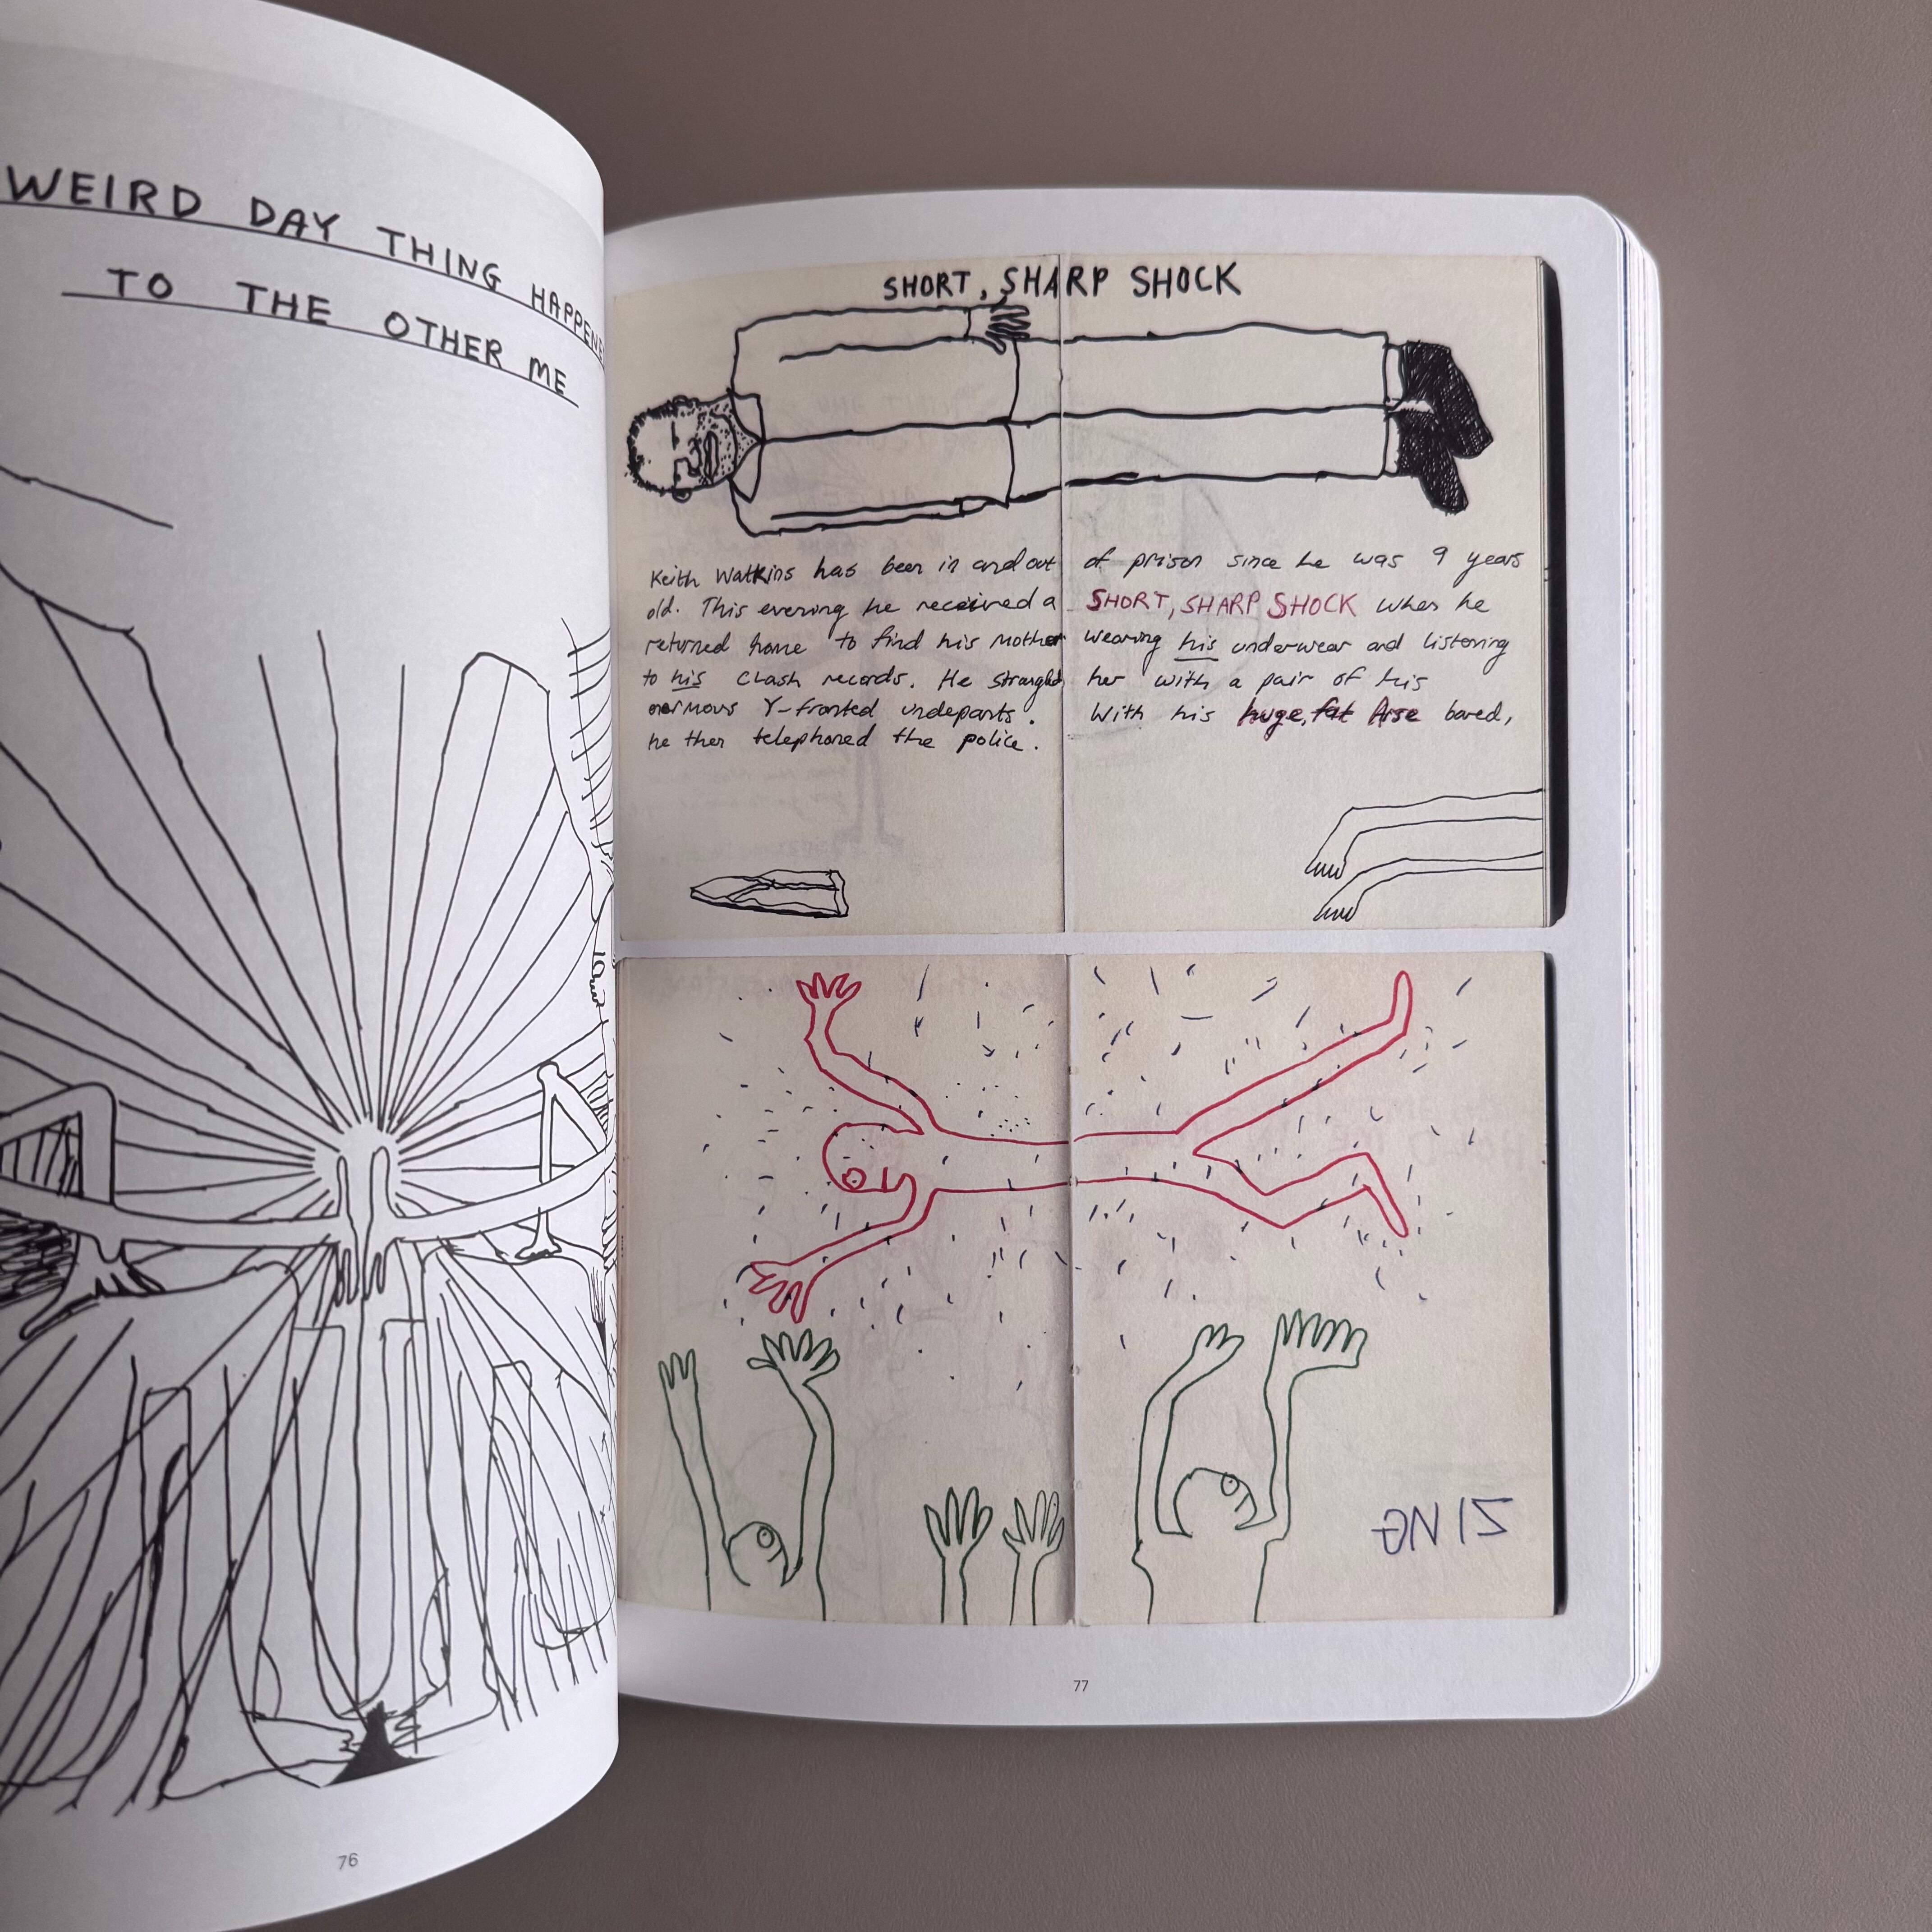 WEIRD DAY THING HAPPENE
TO THE OTHER ME
76
SHORT, SHARP SHOCK
Keith Watkins has been in and out of prison since he was 9 years
old. This evening he received a SHORT, SHARP SHOCK when he
returned home to find his mother wearing his underwear and listening
to his Clash records. He strangled her with a pair of his
enormous Y-fronted undepants. With his huge, fat Arse bared,
he then telephoned the police.
ZING
77